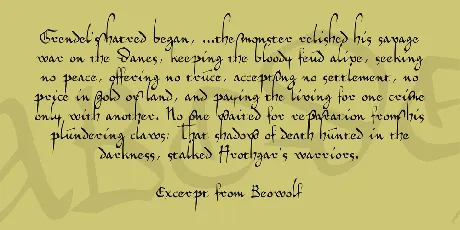 Grendel's hatred began, ...the monster relished his savage
war on the Danes, keeping the bloody feud alive, seeking
no peace, offering no truce, accepting no settlement, no
price in gold or land, and paying the living for one crime
only with another. No one waited for reparation from his
plundering claws; That shadow of death hunted in the
darkness, stalked Hrothgar's warriors.
Excerpt from Beowolf